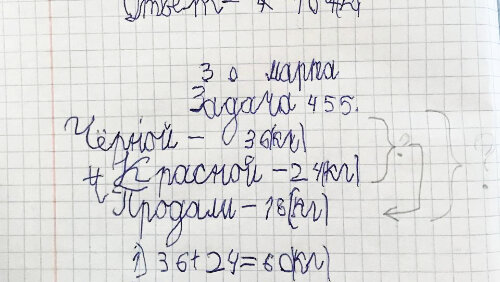 Ответ –
30 марта
Задача 455.
Чёрной – 36(кг)
Красной – 24(кг)
Продали – 18(кг)
1) 36+24=60(кг)